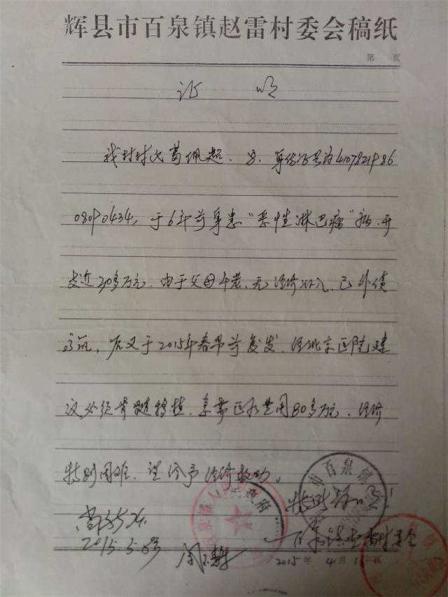 辉县市百泉镇赵雷村委会稿纸
第 页
证 明
我村村民葛佩超，男，身份证号为4107821986
08190434，于6年前身患“恶性淋巴瘤”病，开
支近20多万元，由于父母年老，无经济收入，已外债
高筑，后又于2015年春节前复发，经北京医院建
议必须骨髓移植，亲需医疗费用80多万元，经济
特别困难，望给予经济救助。
特此证明
百泉镇赵雷村委会
2015.5.8号
2015年4月1